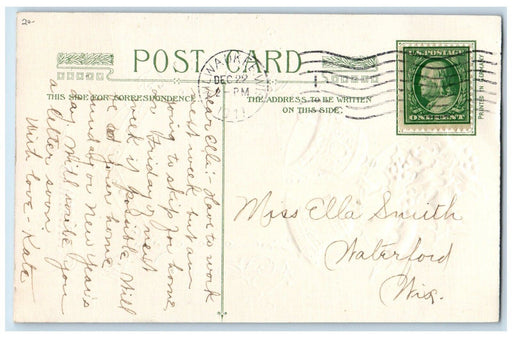 20-
POST CARD
THIS SIDE FOR CORRESPONDENCE
THE ADDRESS TO BE WRITTEN
ON THIS SIDE.
MILWAUKEE, WIS.
DEC 22
2-PM
1911
U.S. POSTAGE
ONE CENT
PRINTED IN GERMANY
Dear Ella:- Have to work
next week but am
going to skip for home
on Friday next
week if possible. Will
be at your home
Sunday or New Year's
day. Will write you
a letter soon.
With love - Kate
Miss Ella Smith
Waterford
Wis.